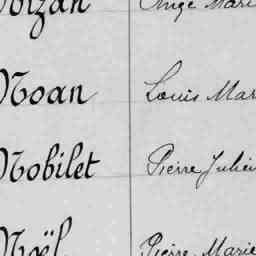 Noizan Ange Mari
Noan Louis Mar
Nobilet Pierre Julien
Noël Pierre Marie